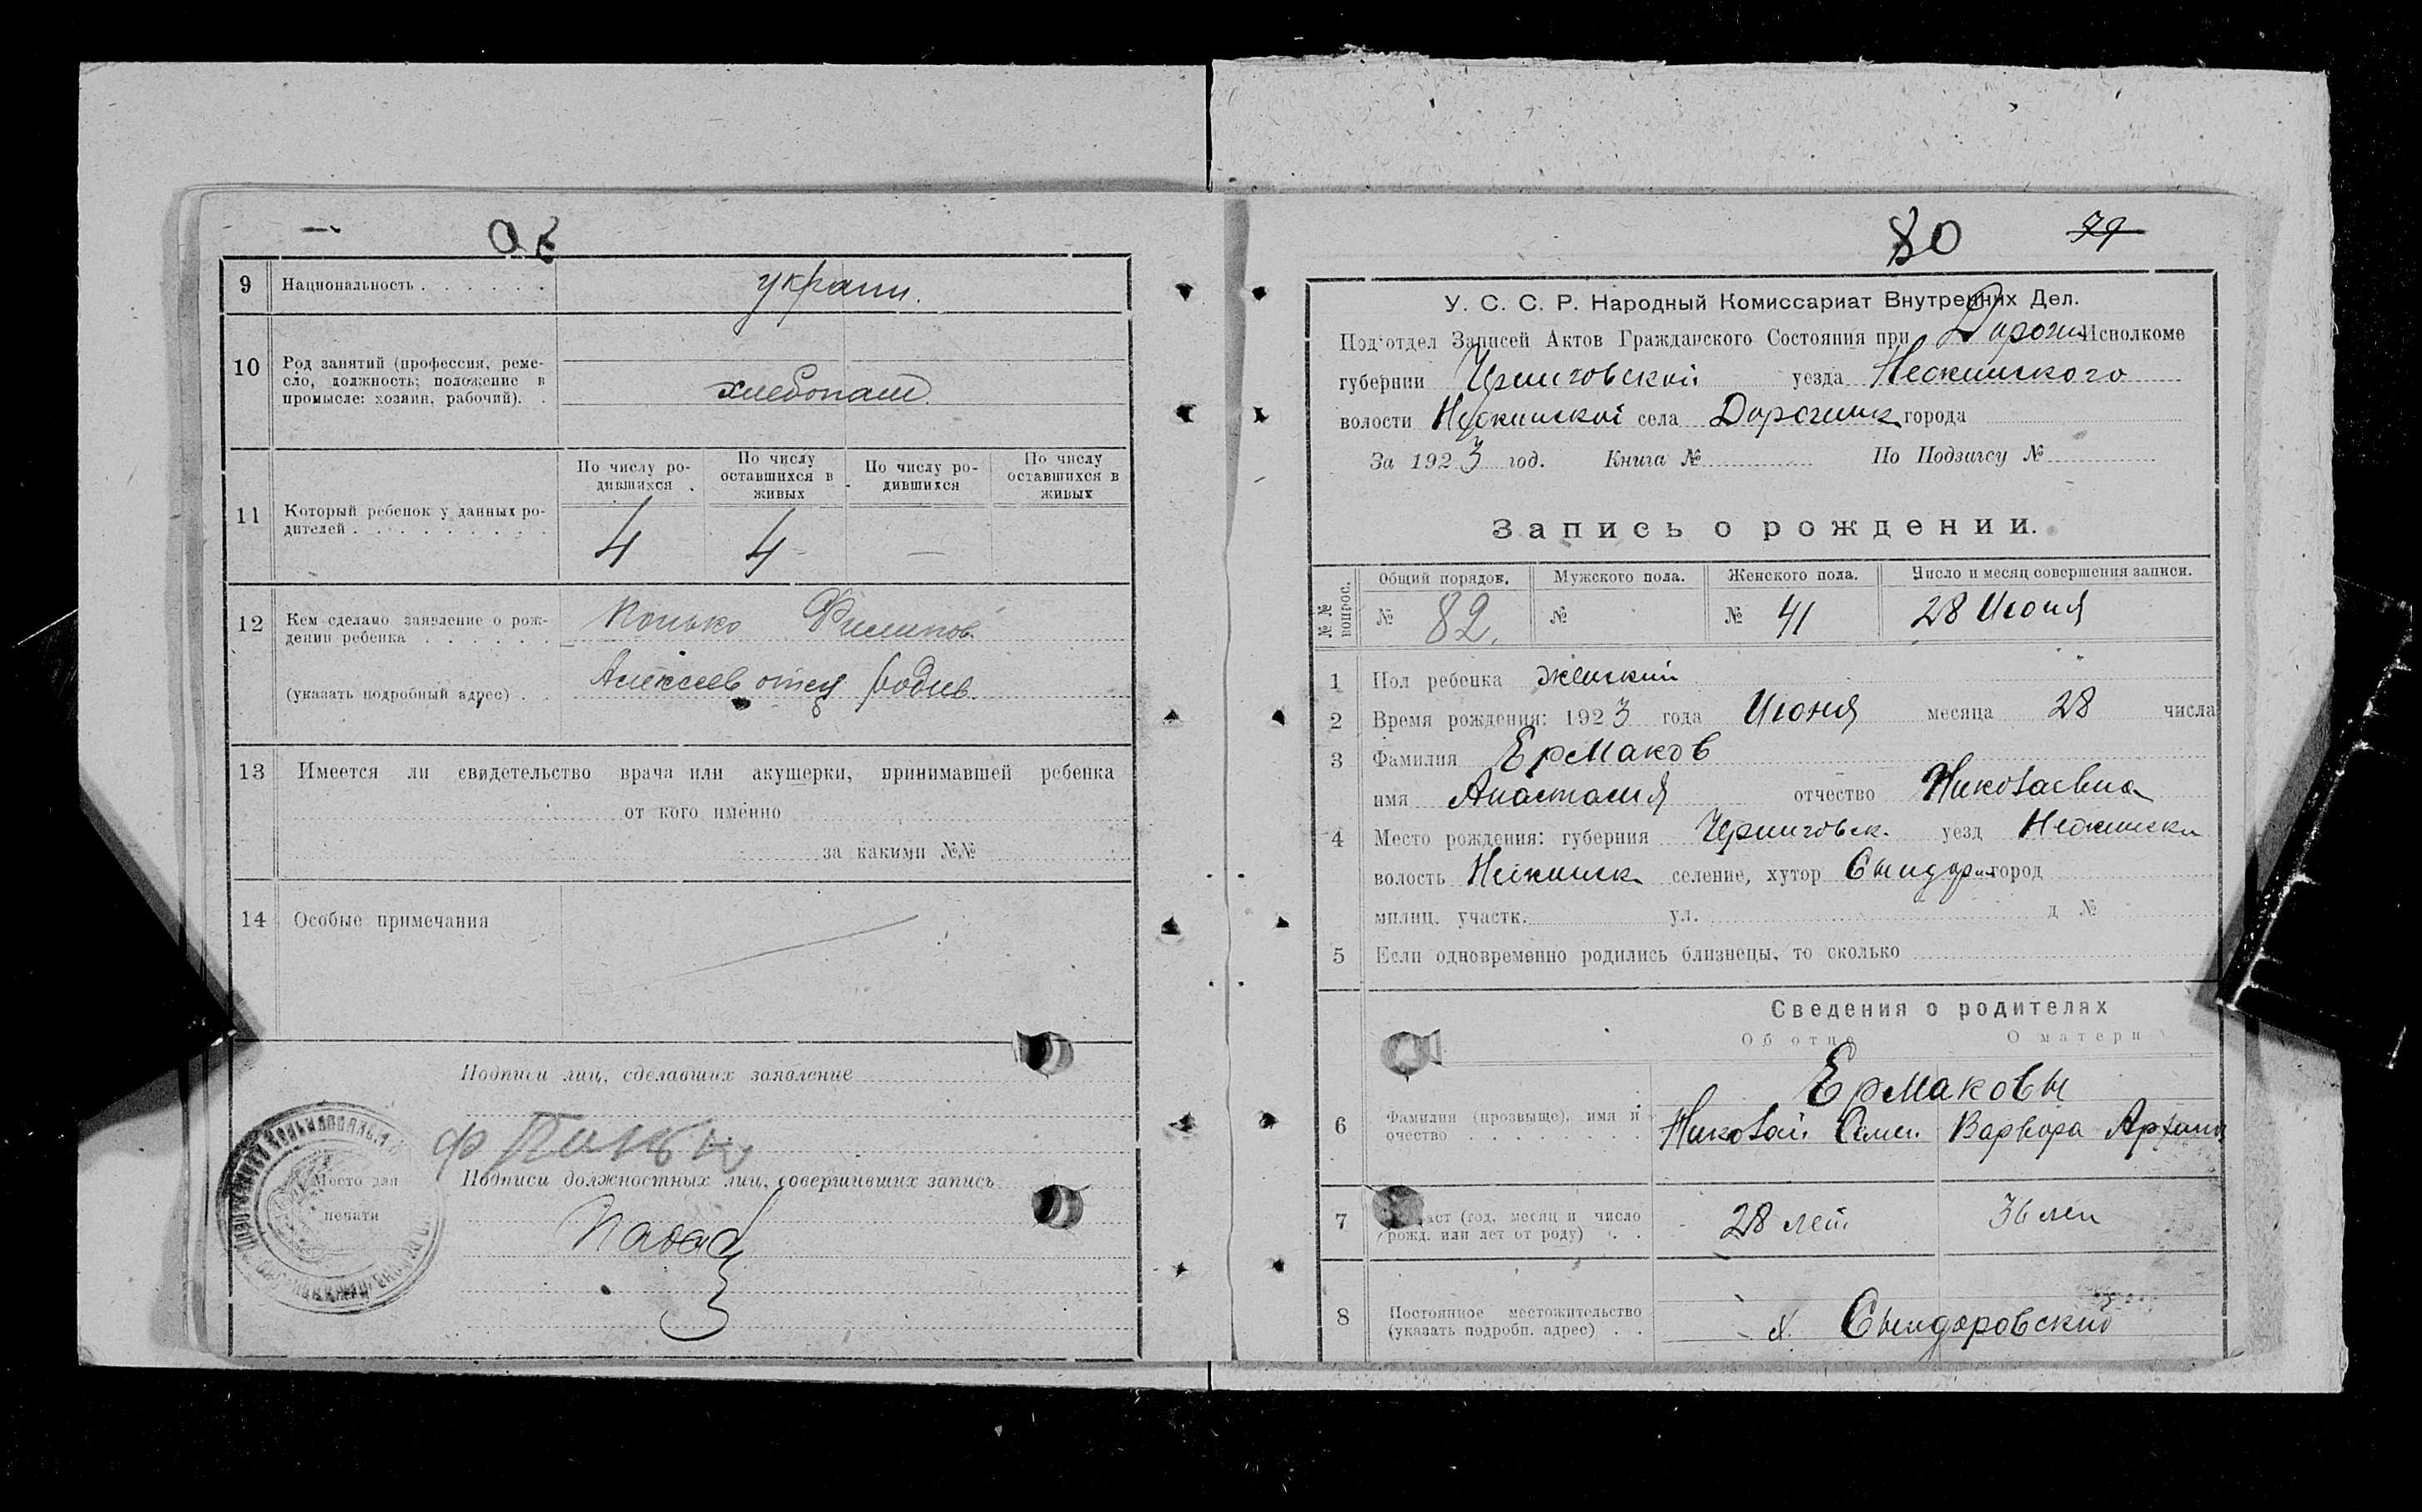 9 Национальность . . . . . . украин.
10 Род занятий (профессия, реме-
сло, должность; положение в
промысле: хозяин, рабочий). . хлебопаш.
По числу ро-
дившихся
По числу
оставшихся в
живых
По числу ро-
дившихся
По числу
оставшихся в
живых
11 Который ребенок у данных ро-
дителей . . . . . . . . . 4 4 —
12 Кем сделано заявление о рож-
дении ребенка . . . . . . Конько Филипов.
(указать подробный адрес) . . Алексеев отец родив.
13 Имеется ли свидетельство врача или акушерки, принимавшей ребенка
от кого именно
за какими №№
14 Особые примечания
Подписи лиц, сделавших заявление
Подписи должностных лиц, совершивших запись
Место для
печати
80 79
У. С. С. Р. Народный Комиссариат Внутренних Дел.
Подотдел Записей Актов Гражданского Состояния при Дорогин Исполкоме
губернии Черниговской уезда Нежинского
волости Нежинской села Дорогинк города
За 1923 год. Книга № По Подзагсу №
Запись о рождении.
№№ вопрос. Общий порядов. Мужского пола. Женского пола. Число и месяц совершения записи.
№ 82. № № 41 28 Июня
1 Пол ребенка женский
2 Время рождения: 1923 года Июня месяца 28 числа
3 Фамилия Ермаков
имя Анастасия отчество Николаевна
4 Место рождения: губерния Черниговск. уезд Нежински
волость Нежинск селение, хутор город
милиц. участк. ул. д №
5 Если одновременно родились близнецы, то сколько
Сведения о родителях
Об отце О матери
Ермаковы
6 Фамилия (прозвыще), имя и
очество . . . . . . . . Николай Семен. Варвара Архипа
7 раст (год, месяц и число
рожд. или лет от роду) . . 28 лет 36 лет
8 Постоянное местожительство
(указать подробн. адрес) . . х. Сындаровский